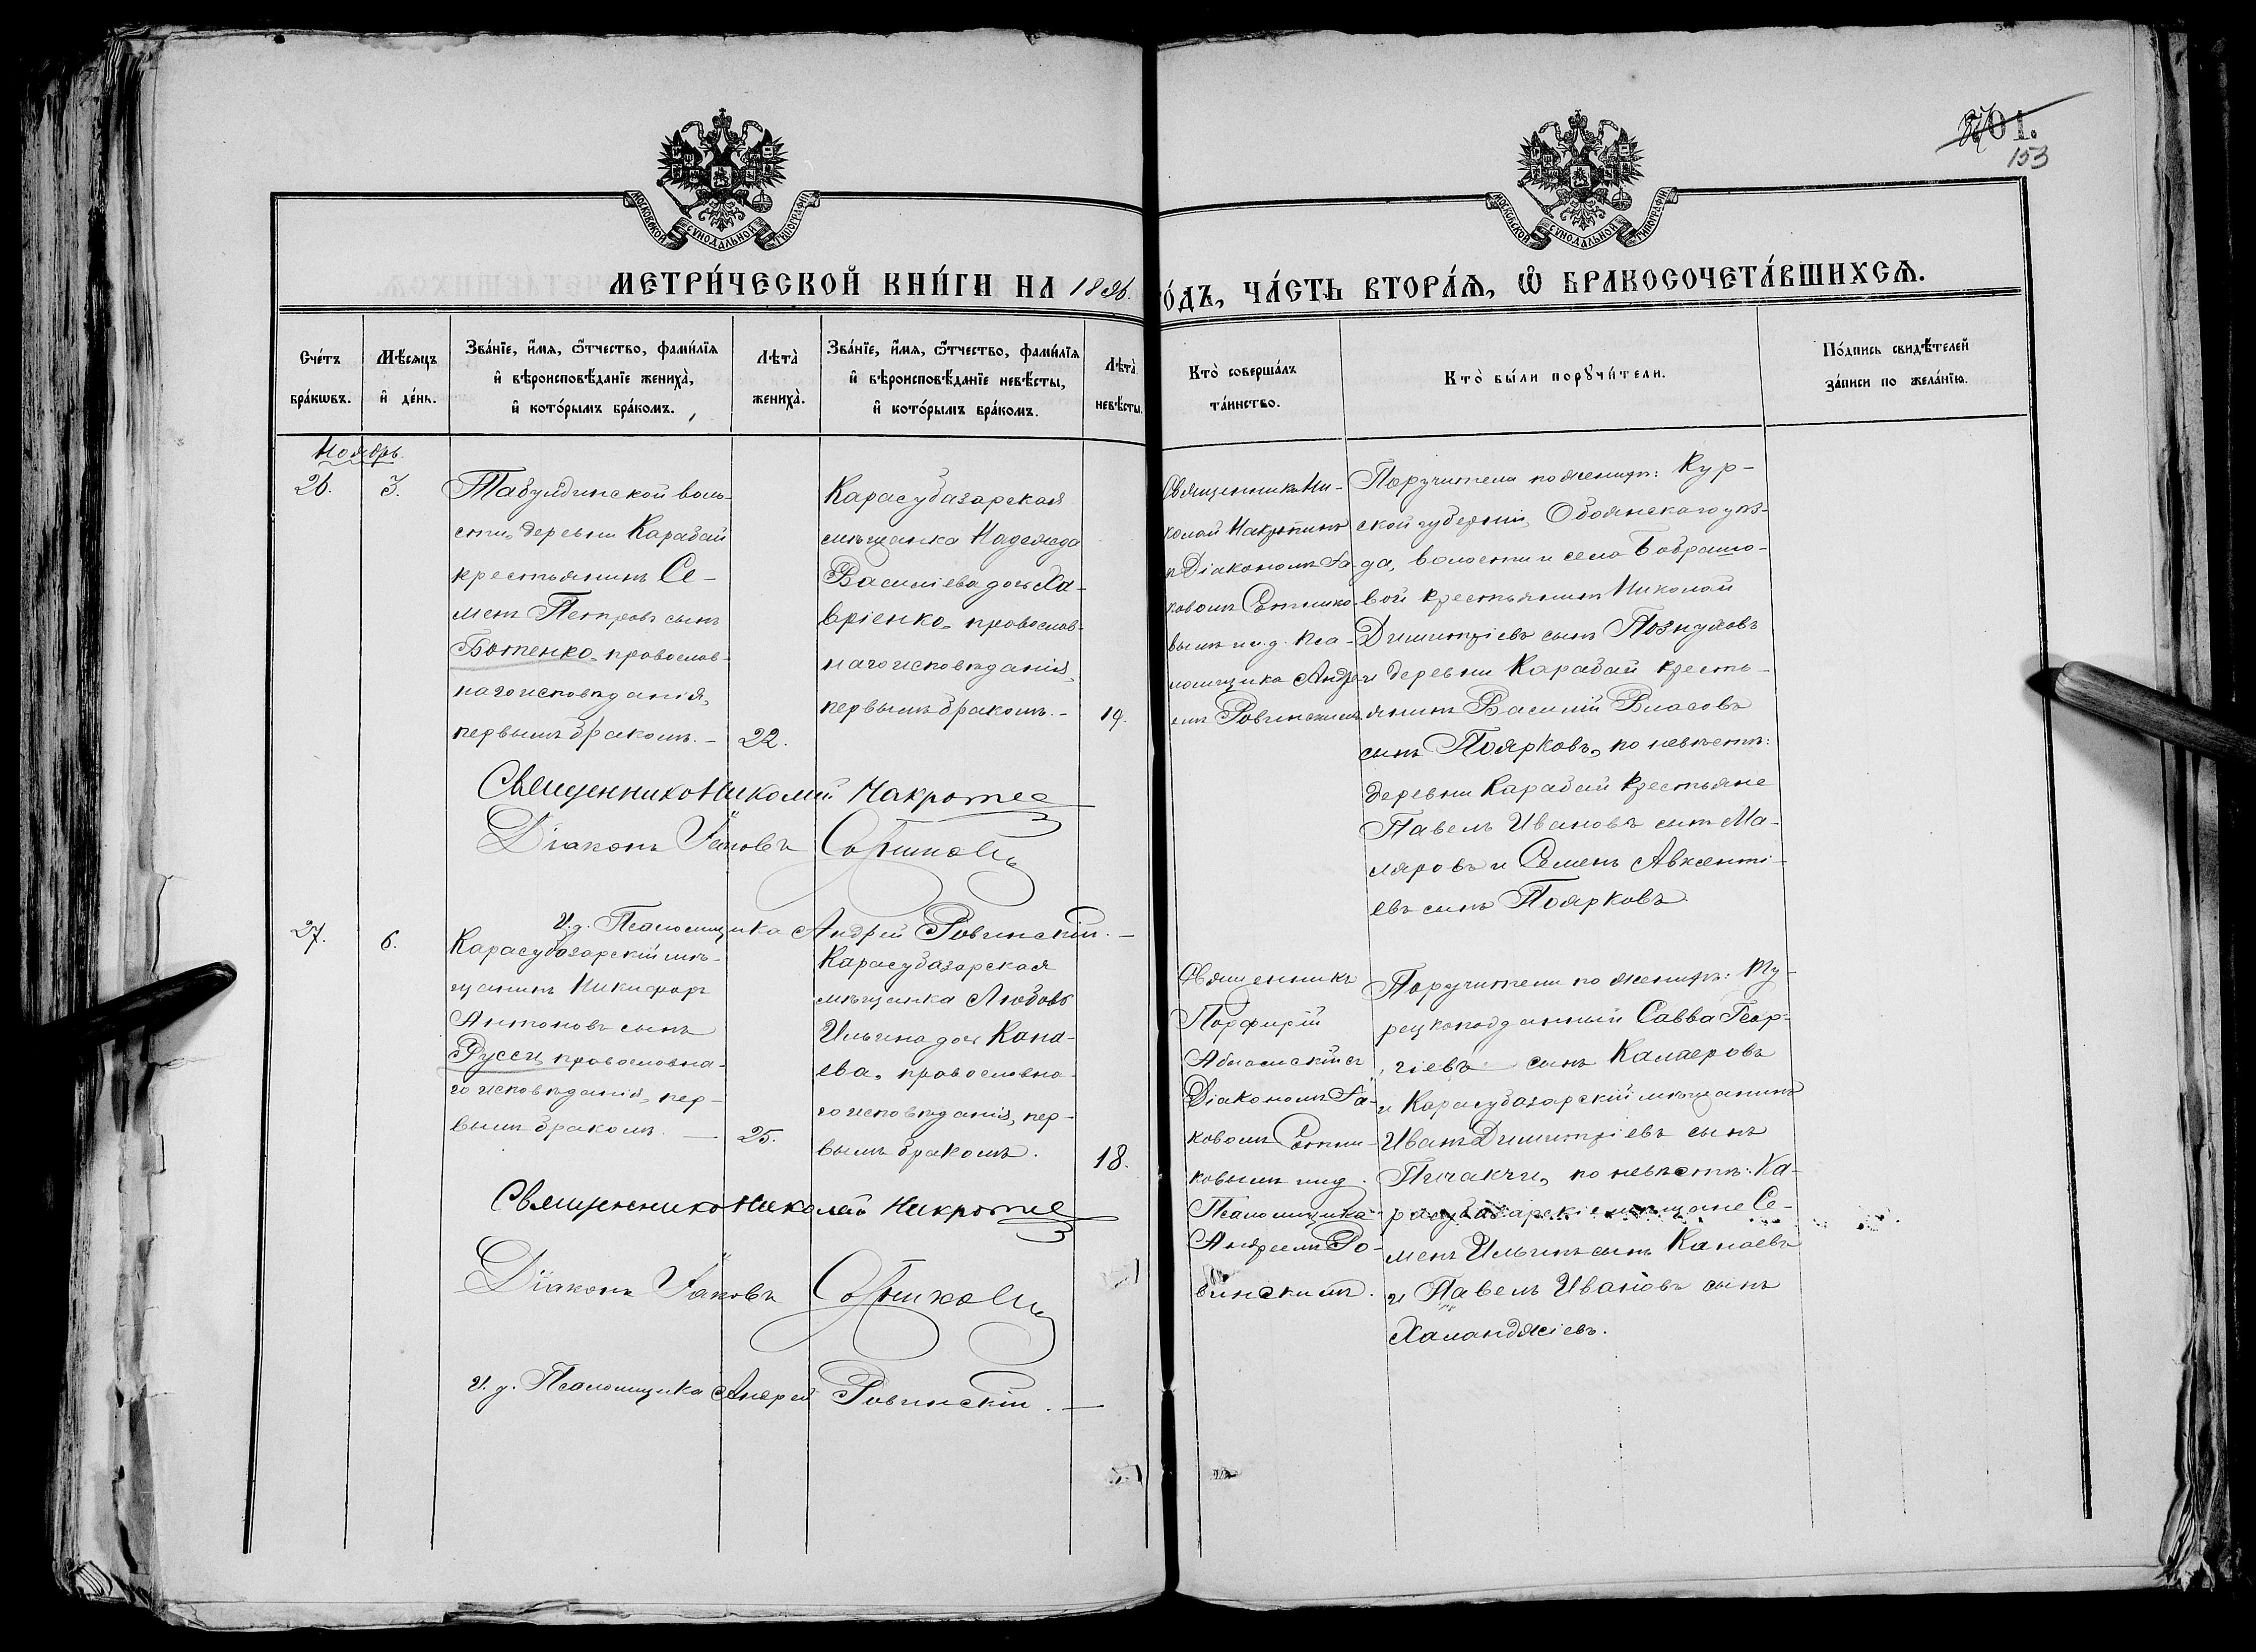 701.
153
МОСКОВСКОЙ СѴНОДАЛЬНОЙ ТИПОГРАФІИ
МОСКОВСКОЙ СѴНОДАЛЬНОЙ ТИПОГРАФІИ
МЕТРИ́ЧЕСКОЙ КНИ́ГИ НА 1896. ГО́ДЪ, ЧА́СТЬ ВТОРА́Ѧ, Ѿ БРАКОСОЧЕТА́ВШИХСѦ.
Сче́тъ
бра́кѡвъ.
Мѣ́сяцъ
и҆ де́нь.
Зва́нїе, и҆́мѧ, ѻ҆́тчество, фами́лїѧ
и҆ вѣроисповѣ́данїе жениха̀,
и҆ кото́рымъ бра́комъ.
Лѣта̀
жениха̀.
Зва́нїе, и҆́мѧ, ѻ҆́тчество, фами́лїѧ
и҆ вѣроисповѣ́данїе невѣ́сты,
и҆ кото́рымъ бра́комъ.
Лѣта̀
невѣ́сты.
Кто̀ соверша́лъ
та́инство.
Кто̀ бы́ли порꙋчи́тели.
По́дпись свидѣ́телей
за́писи по жела́нїю.
Ноябрь
26.
3.
Табулдинской воло-
сти, деревни Карабай
крестьянинъ Се-
менъ Петровъ сынъ
Ботенко, православ-
наго исповѣданія,
первымъ бракомъ.-
22.
Карасубазарская
мѣщанка Надежда
Василіева дочь Ха-
вріенко, православ-
наго исповѣданія,
первымъ бракомъ.-
19.
Священникъ Ни-
колай Макротинъ
съ Діакономъ Іа-
ковомъ Сотнико-
вымъ и и.д. Пса-
ломщика Андре-
емъ Ровинскимъ
Поручители по женихѣ: Кур-
ской губерніи, Обоянскаго уѣз-
да, волости и села Бобрышо-
вой крестьянинъ Николай
Димитріевъ сынъ Познуховъ
и деревни Карабай кресть-
янинъ Василій Власовъ
сынъ Поярковъ, по невѣстѣ:
деревни Карабай крестьяне
Павелъ Ивановъ сынъ Ма-
ляровъ и Семенъ Авксенті-
евъ сынъ Поярковъ.
Священникъ Николай
Діаконъ Іаковъ Сотниковъ
И.д. Псаломщика Андрей Ровинскій.-
27.
6.
Карасубазарскій мѣ-
щанинъ Никифоръ
Антоновъ сынъ
Русси, православна-
го исповѣданія, пер-
вымъ бракомъ.-
25.
Карасубазарская
мѣщанка Любовь
Ильина дочь Кана-
ева, православна-
го исповѣданія, пер-
вымъ бракомъ.
18.
Священникъ
Порфирій
съ
Діакономъ Іа-
ковомъ Сотни-
ковымъ и и.д.
Псаломщика
Андреемъ Ро-
винскимъ.
Поручители по женихѣ: Ту-
рецкоподданный Савва Геор-
гіевъ сынъ Калаеровъ
и Карасубазарскій мѣщанинъ
Иванъ Димитріевъ сынъ
Пичакчи, по невѣстѣ: Ка-
расубазарскіе мѣщане Се-
менъ Ильинъ сынъ Канаевъ
и Павелъ Ивановъ сынъ
Халанджіевъ.
Священникъ Николай
Діаконъ Іаковъ Сотниковъ
И.д. Псаломщика Андрей Ровинскій.-